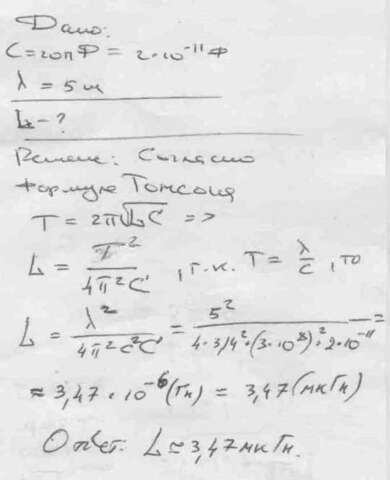 Дано:
C = 20пФ = 2·10⁻¹¹Ф
λ = 5 м
L - ?
Решение: Согласно
формуле Томсона
T = 2π√LC =>
L = T²/4π²C, т.к. T = λ/c, то
L = λ²/4π²c²C = 5²/4·3,14²·(3·10⁸)²·2·10⁻¹¹ =
≈ 3,47·10⁻⁶(Гн) = 3,47(мкГн)
Ответ: L ≈ 3,47мкГн.